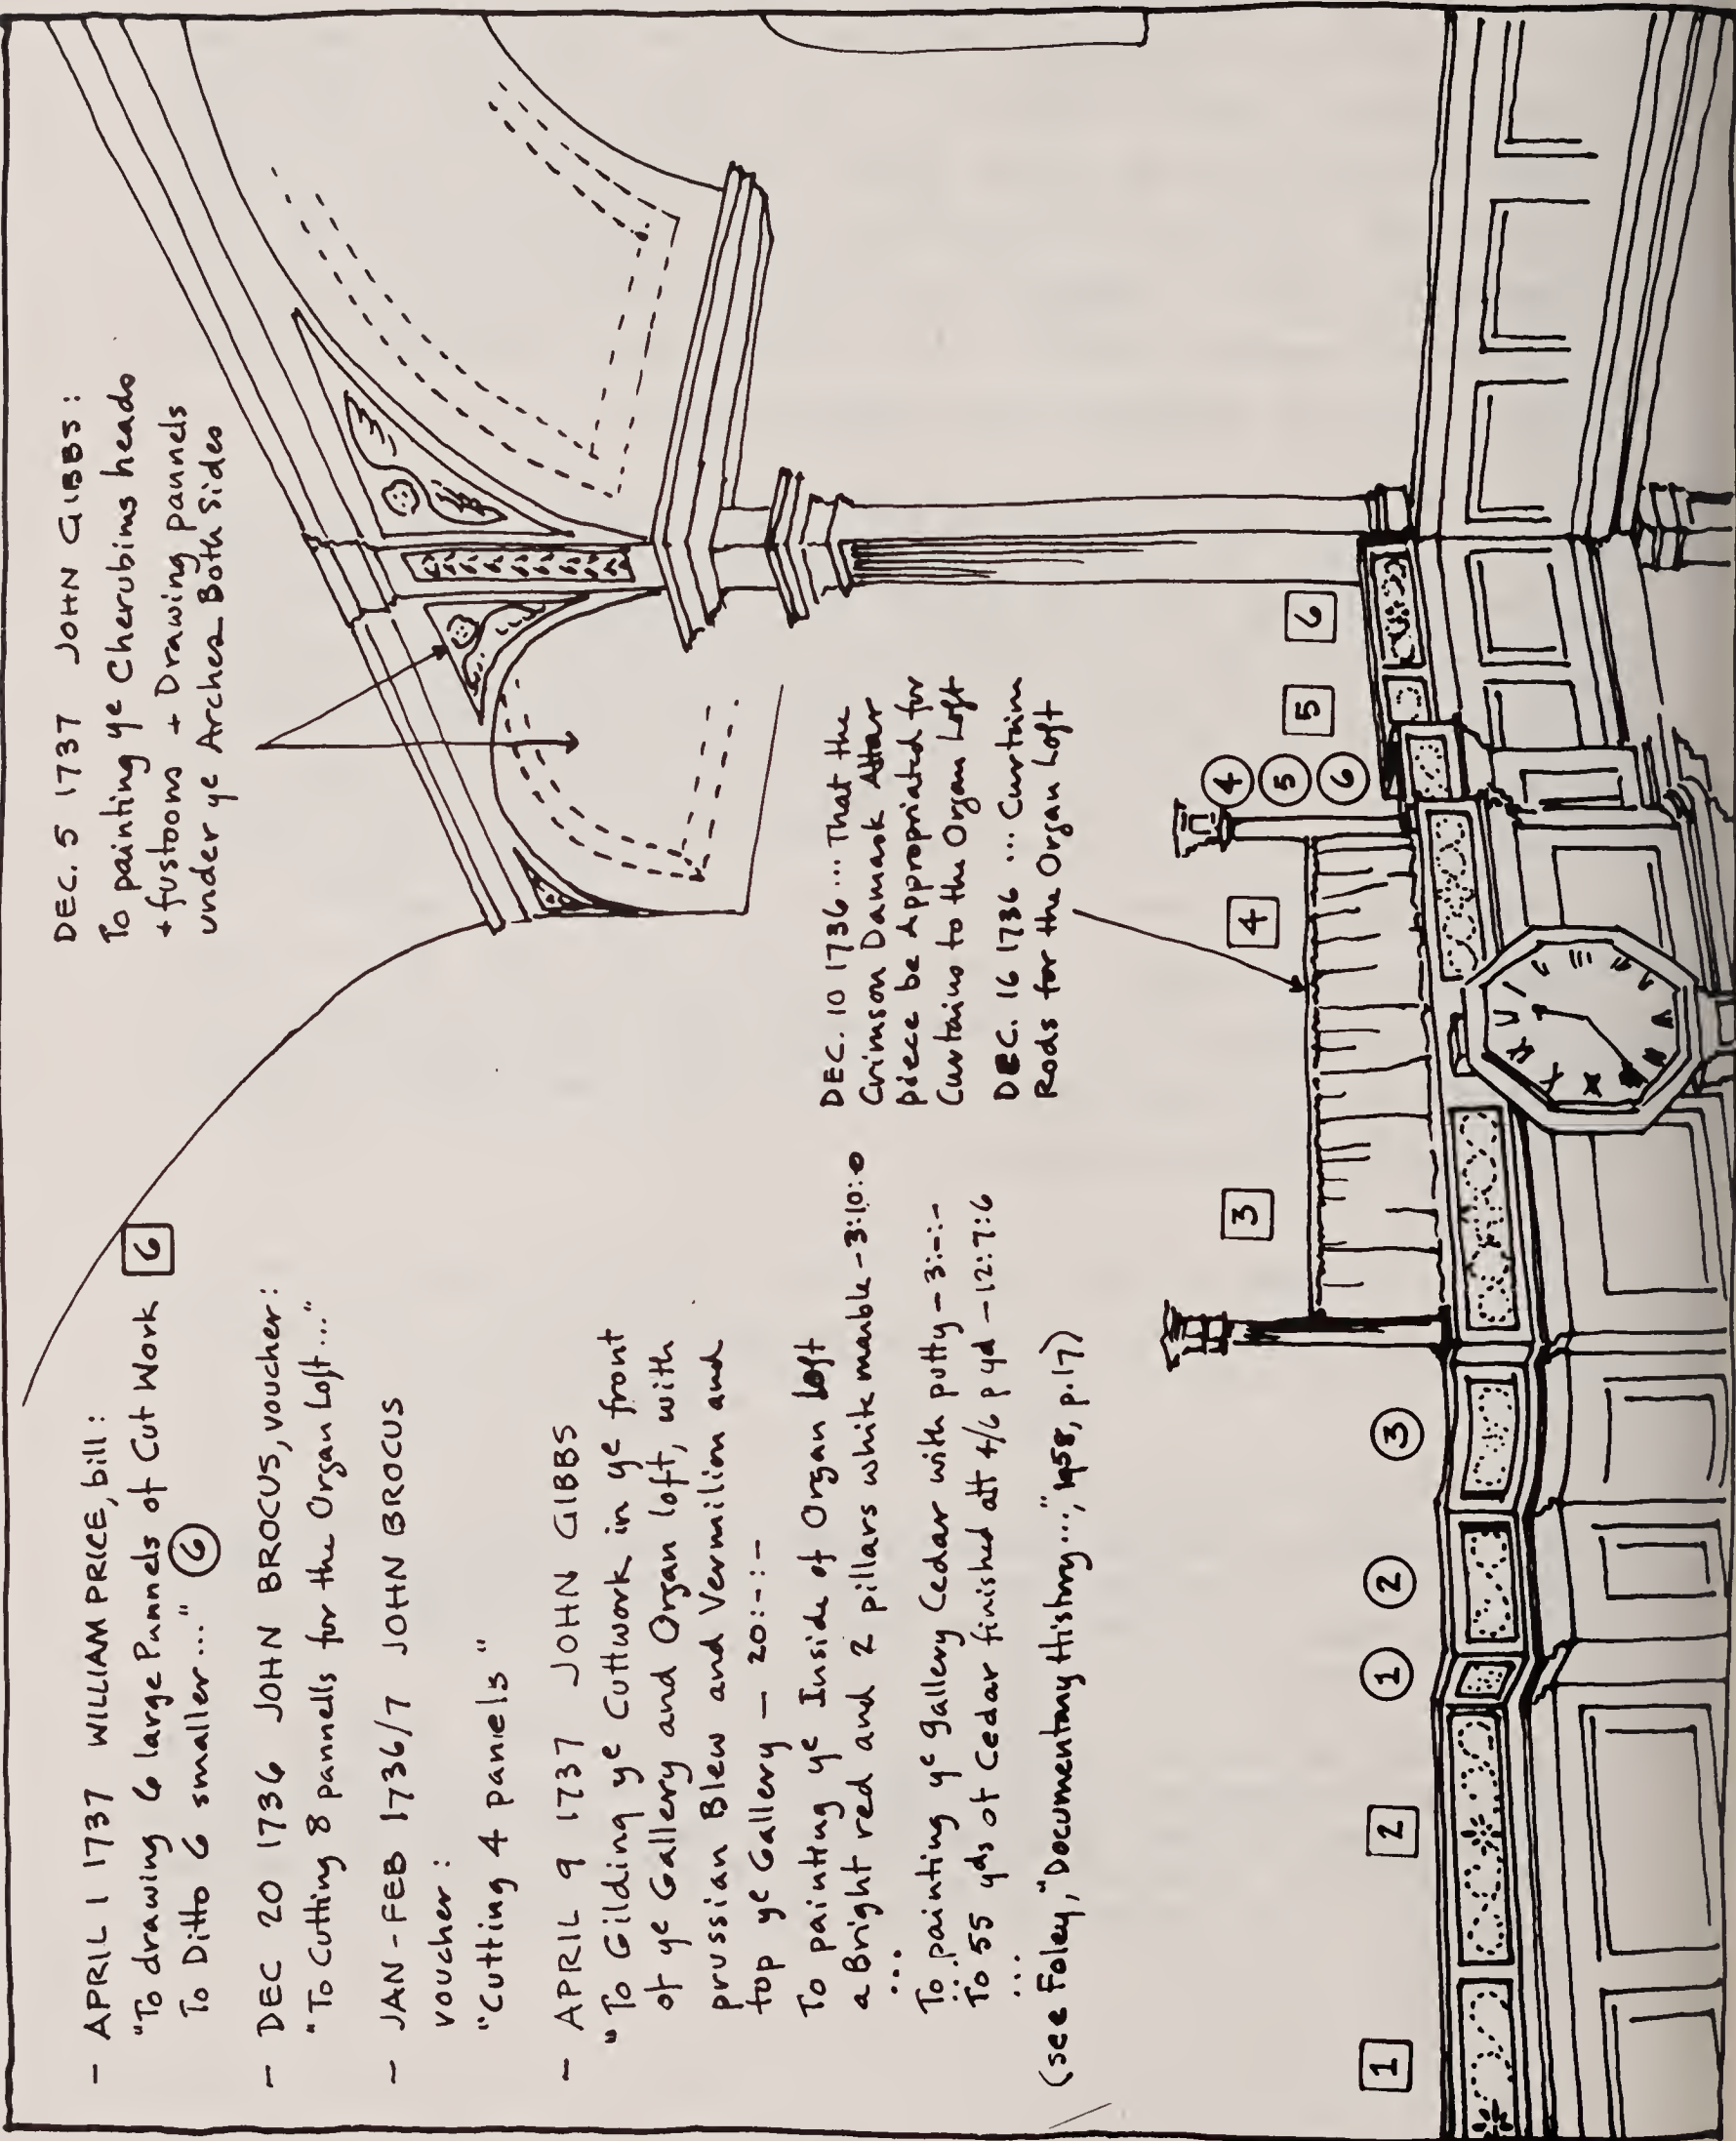 – APRIL 1 1737 WILLIAM PRICE, bill:
"To drawing 6 large Pannels of Cut Work 6
To Ditto 6 smaller..." 6
– DEC 20 1736 JOHN BROCUS, voucher:
"To Cutting 8 pannells for the Organ Loft..."
– JAN-FEB 1736/7 JOHN BROCUS
voucher:
"Cutting 4 panels"
– APRIL 9 1737 JOHN GIBBS
"To Gilding ye Cuttwork in ye front
of ye Gallery and Organ loft, with
prussian Blew and Vermilion and
top ye Gallery – 20:-:-
To painting ye Inside of Organ Loft
a Bright red and 2 pillars white marble – 3:10:0
...
To painting ye Gallery Cedar with putty – 3:-:-
...
To 55 yds of Cedar finished att 4/6 p yd – 12:7:6
...
(see Foley, "Documentary History...", 1958, p.17)
DEC. 5 1737 JOHN GIBBS:
To painting ye Cherubims heads
+ fustoons + Drawing pannels
under ye Arches Both sides
DEC. 10 1736 ... That the
Crimson Damask Altar
piece be Appropriated for
Curtains to the Organ Loft
DEC. 16 1736 ... Curtain
Rods for the Organ Loft
1
2
1
2
3
3
4
4
5
6
5
6